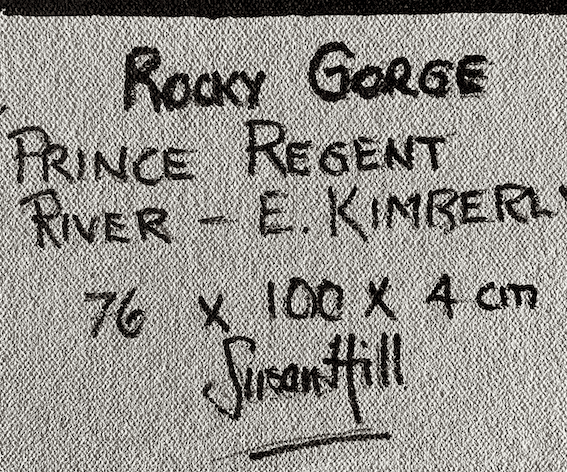 ROCKY GORGE
PRINCE REGENT
RIVER - E. KIMBERLY
76 X 100 X 4 cm
Susan Hill